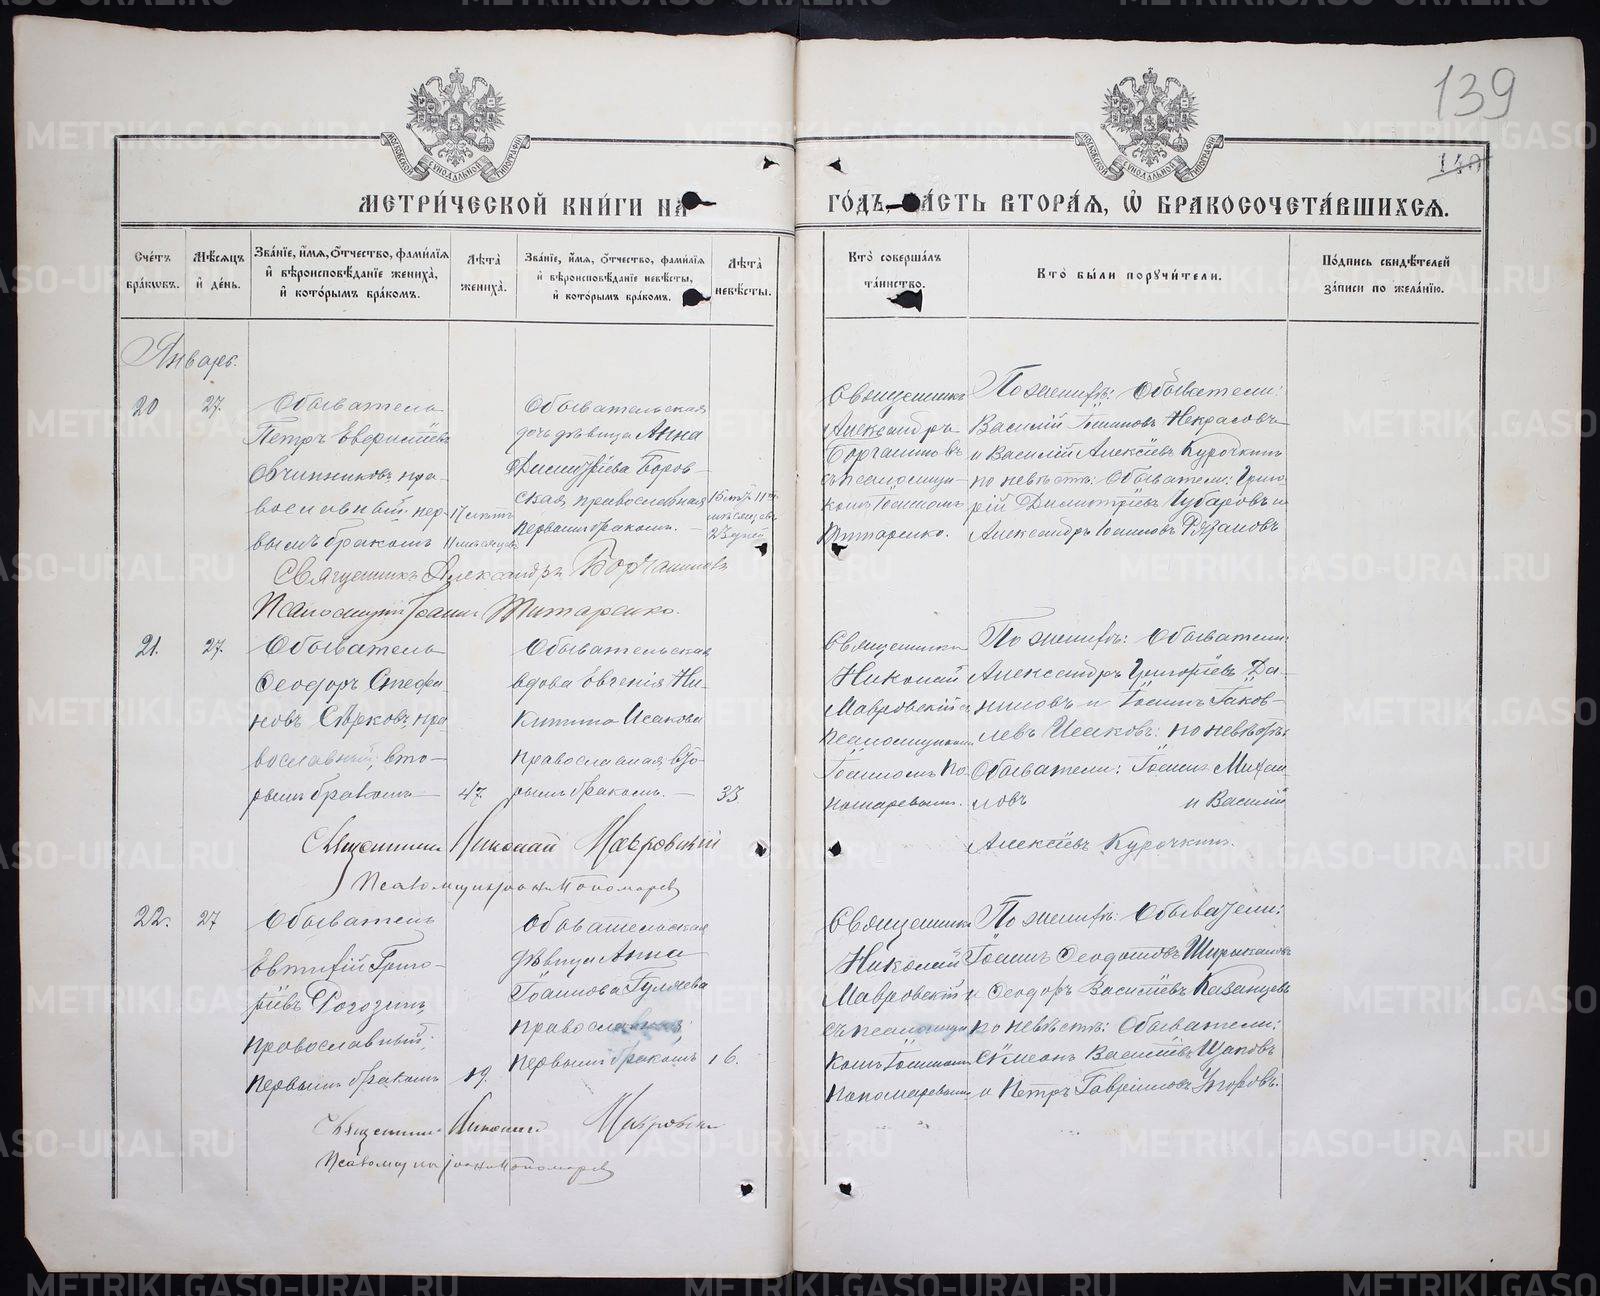 139
140
МОСКОВСКОЙ СѴНОДАЛЬНОЙ ТИПОГРАФІИ
МОСКОВСКОЙ СѴНОДАЛЬНОЙ ТИПОГРАФІИ
МЕТРИ́ЧЕСКОЙ КНИ́ГИ НА
ГО́ДЪ, ЧА́СТЬ ВТОРА́Я, Ѡ҆ БРАКОСОЧЕТА́ВШИХСЯ.
Сче́тъ бра́кѡвъ.
Мѣ́сяцъ и҆ де́нь.
Зва́нїе, и҆́мя, ѻ҆́тчество, фами́лїя и҆ вѣроисповѣ́данїе жениха̀, и҆ кото́рымъ бра́комъ.
Лѣ́та жениха̀.
Зва́нїе, и҆́мя, ѻ҆́тчество, фами́лїя и҆ вѣроисповѣ́данїе невѣ́сты, и҆ кото́рымъ бра́комъ.
Лѣ́та невѣ́сты.
Кто̀ соверша́лъ та́инство.
Кто̀ бы́ли поручи́тели.
По́дпись свидѣ́телей за́писи по жела́нїю.
Январь.
20
27.
Обыватель
Петръ
Овчинниковъ, пра-
вославный, пер-
вымъ бракомъ
17 лѣтъ
11 мѣсяцевъ
Обывательская
дочь дѣвица Анна
Димитріева Боров-
ская, православная
первымъ бракомъ. —
15 лѣтъ 11
мѣсяцевъ
23 дней
Священникъ
Александръ
съ псаломщи-
комъ Іоанномъ
Титаренко.
По женихѣ: Обыватели:
Василій Іоанновъ Некрасовъ
и Василій Алексіевъ Курочкинъ
по невѣстѣ: Обыватели: Григо-
рій Димитріевъ Чубаровъ и
Александръ Іоанновъ Рязановъ
Священникъ Александръ
Псаломщикъ Іоаннъ Титаренко.
21.
27.
Обыватель
Ѳеодоръ Стефа-
новъ пра-
вославный, вто-
рымъ бракомъ —
47.
Обывательская
вдова Евгенія Ни-
китина Исакова
православная, вто-
рымъ бракомъ. —
33
Священникъ
Николай
Мавровскій съ
псаломщикомъ
Іоанномъ По-
номаревымъ.
По женихѣ: Обыватели:
Александръ Григоріевъ Да-
ниловъ и Іоаннъ Іаков-
левъ Исаковъ: по невѣстѣ:
Обыватели: Іоаннъ Михаи-
ловъ и Василій
Алексіевъ Курочкинъ.
Священникъ Николай Мавровскій
Псаломщикъ Іоаннъ Пономаревъ
22.
27
Обыватель
Евтихій Григо-
ріевъ Рогозинъ,
православный,
первымъ бракомъ
19.
Обывательская
дѣвица Анна
Іоаннова Гуляева
православная:
первымъ бракомъ
16.
Священникъ
Николай
Мавровскій
съ псаломщи-
комъ Іоанномъ
Пономаревымъ
По женихѣ: Обыватели:
Іоаннъ Ѳеодотовъ
и Ѳеодоръ Василіевъ Казанцевъ
по невѣстѣ: Обыватели:
Сѵмеонъ Василіевъ
и Петръ Гавріиловъ
Священникъ Николай Мавровскій
Псаломщикъ Іоаннъ Пономаревъ
METRIKI.GASO-URAL.RU